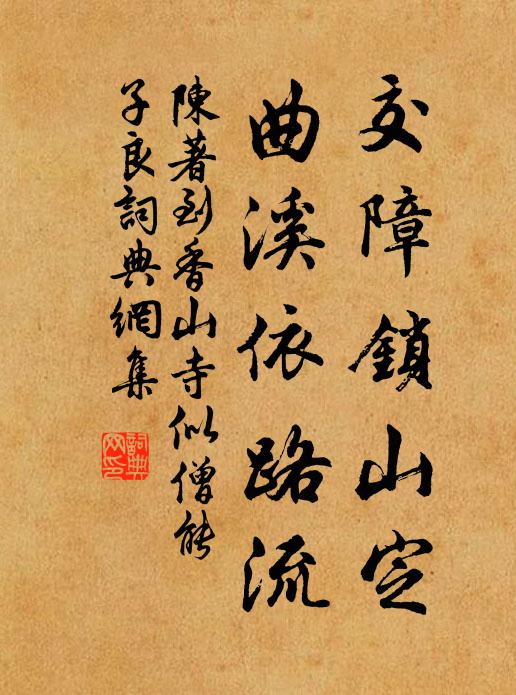 交障鎖山定
曲溪依路流
陳著到香山寺似僧能
子良詞典網集
詞典网印